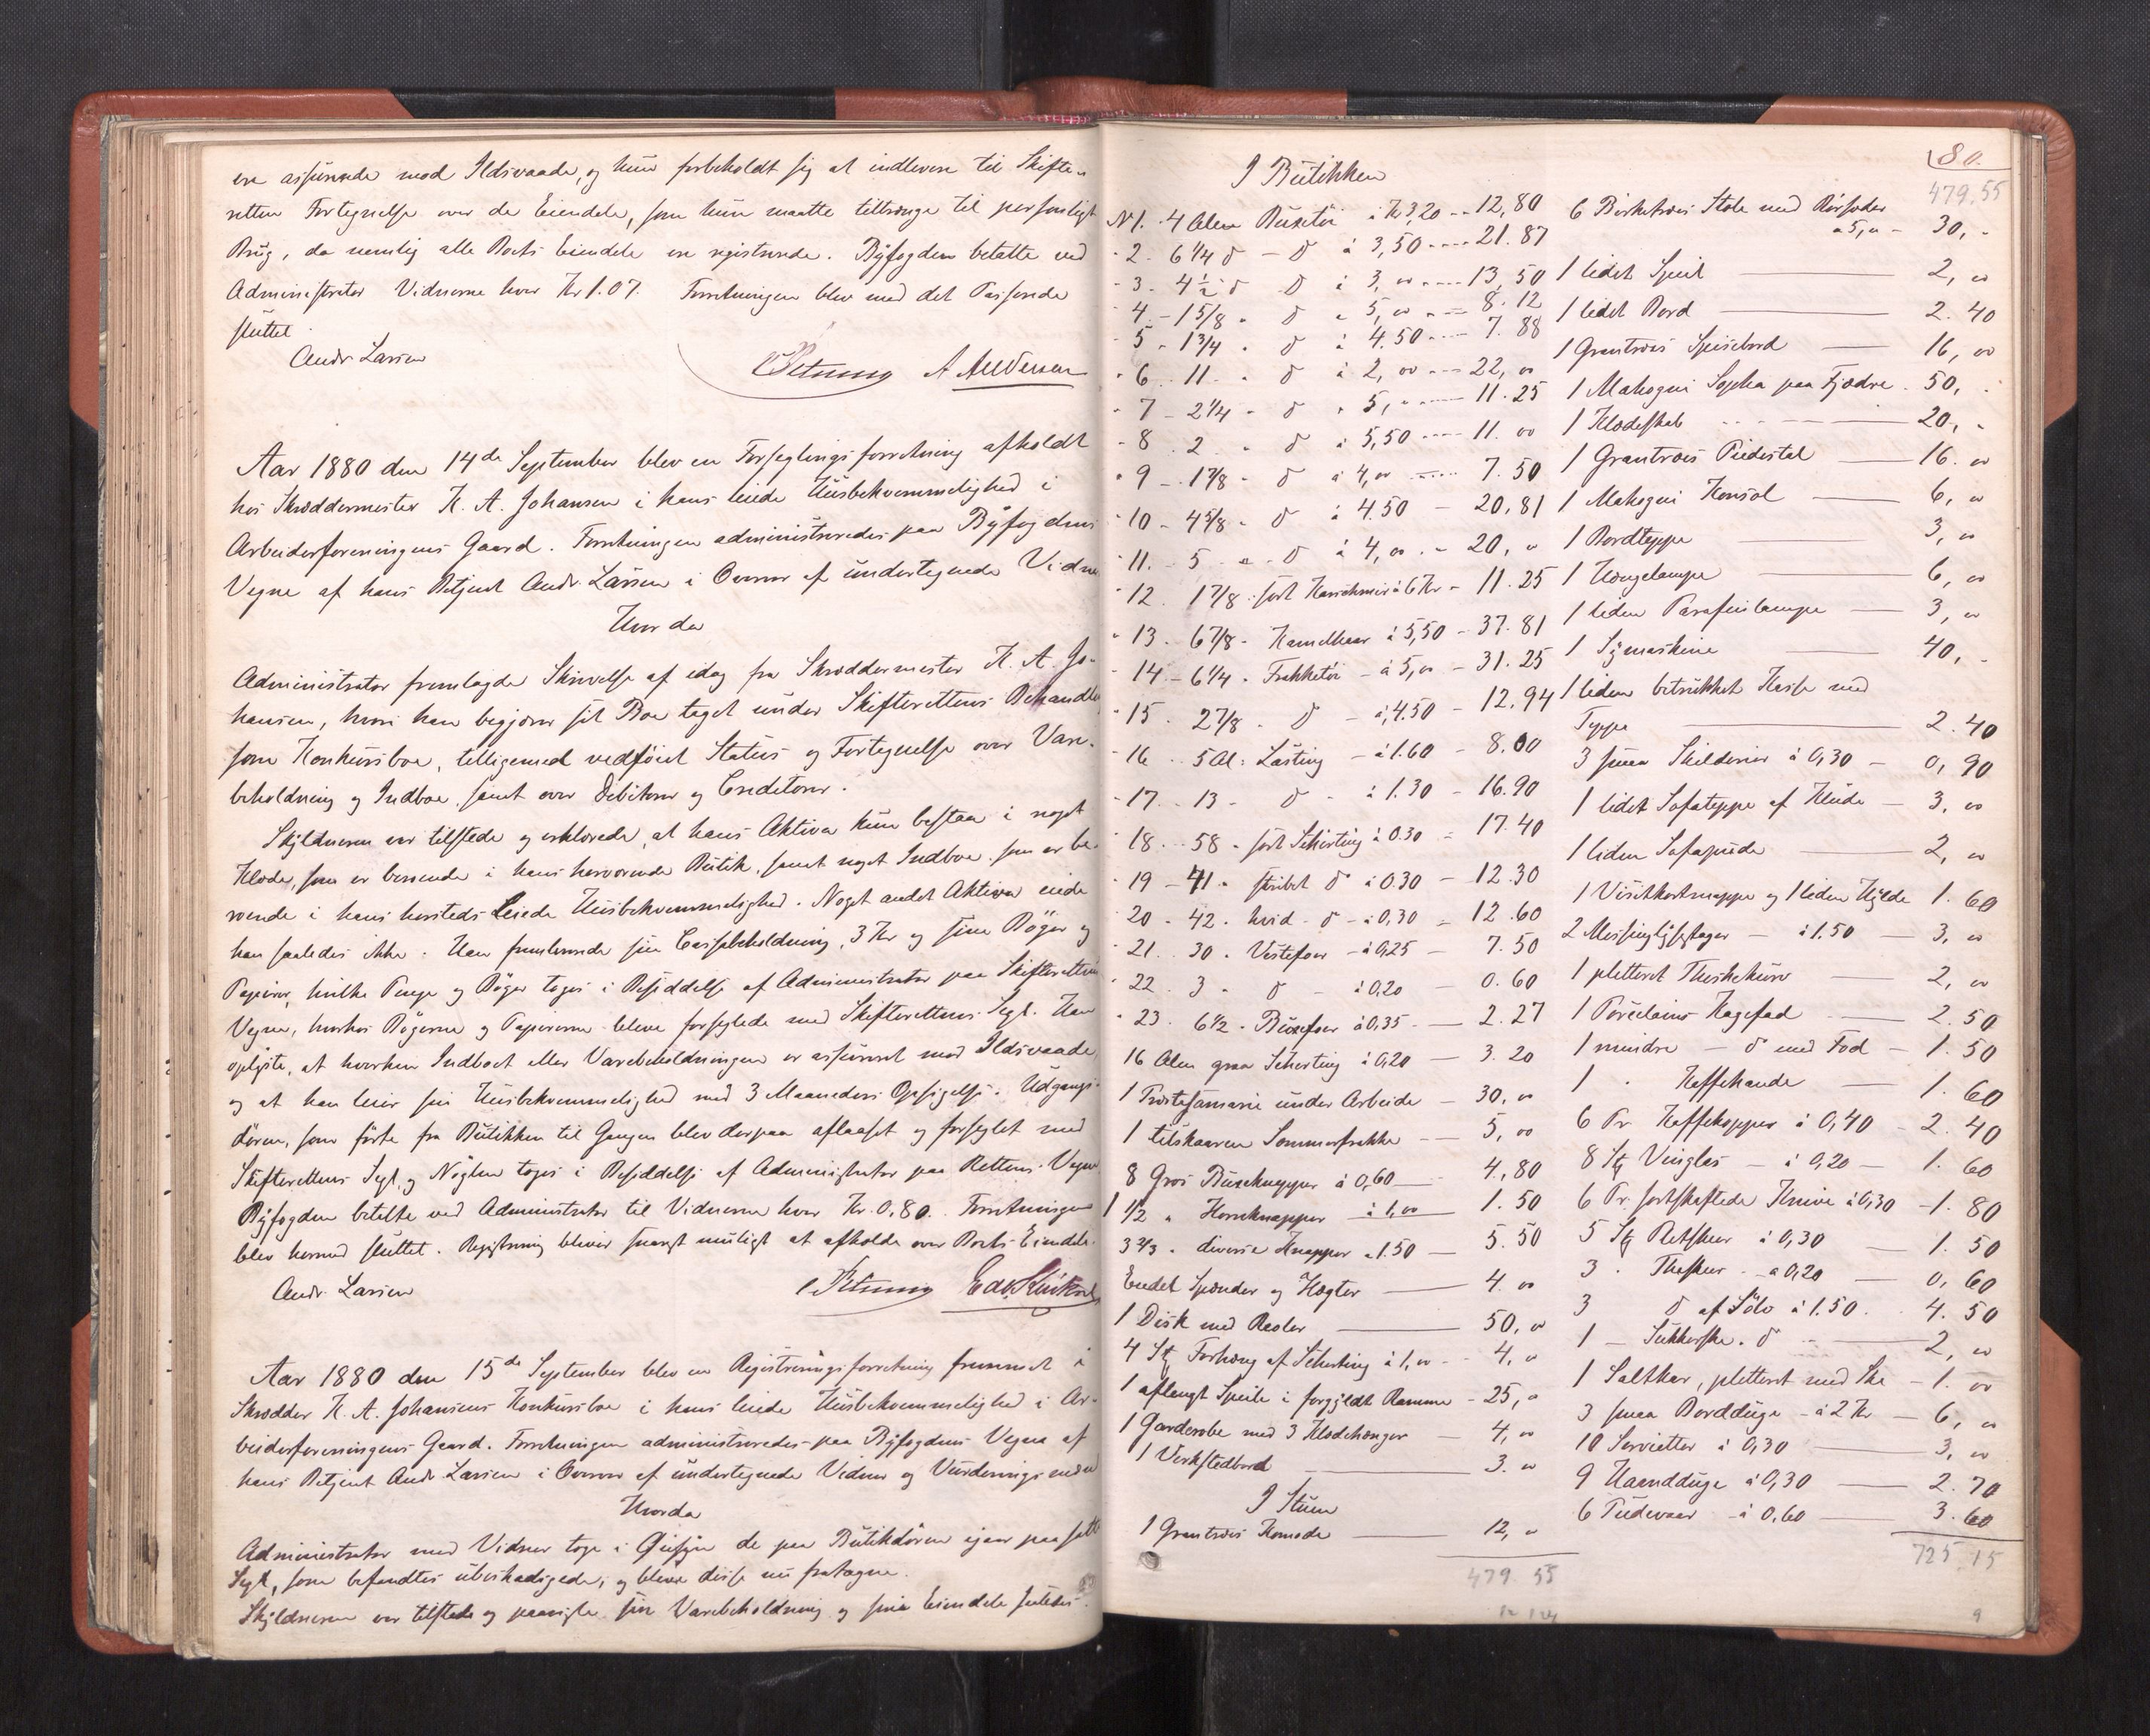 ere assurerede mod Ildsvaade, og hun forbeholdt sig at indlevere til Skifte-
retten Fortegnelse over de Eiendele, som hun maatte tiltrænge til personligt
Brug, da nemlig alle Boets Eiendele ere registrerede. Byfogden betalte ved
Administrator Vidnerne hver Kr 1.07. Forretningen blev med det Passerede
sluttet.
Andr Larsen
A Andersen
Aar 1880 den 14de September blev en Forseglingsforretning afholdt
hos Skræddermester K. A. Johansen i hans leiede Huusbekvemmelighed i
Arbeiderforeningens Gaard. Forretningen administreredes paa Byfogdens
Vegne af hans Betjent Andr. Larsen i Overvær af undertegnede Vidner
Hvorda
Administrator fremlagde Skrivelse af idag fra Skræddermester K. A. Jo-
hansen, hvori han begjærer sit Boe taget under Skifterettens Behandling
som Konkursboe, tilligemed vedføiet Status og Fortegnelse over Vare-
beholdning og Indboe, samt over Debitorer og Creditorer.
Skyldneren var tilstede og erklærede, at hans Aktiva kun bestaa i noget
Klæde, som er beroende i hans herværende Butik, samt noget Indboe, som er be-
roende i hans hersteds leiede Huusbekvemmelighed. Noget andet Aktiva eiede
han saaledes ikke. Han fremleverede sin Cassebeholdning, 3 Kr og sine Bøger og
Papirer, hvilke Penge og Bøger toges i Besiddelse af Administrator paa Skifterettens
Vegne, hvorhos Bøgerne og Papirerne bleve forseglede med Skifterettens Segl. Han
oplyste, at hverken Indboet eller Varebeholdningen er assureret mod Ildsvaade,
og at han leier sin Huusbekvemmelighed med 3 Maaneders Opsigelse. Udgangs-
døren, som førte fra Butikken til Gangen blev derpaa aflaaset og forseglet med
Skifterettens Segl, og Nøglen toges i Besiddelse af Administrator paa Rettens Vegne
Byfogden betalte ved Administrator til Vidnerne hver Kr. 0,80. Forretningen
blev hermed sluttet. Registrering bliver snarest muligt at afholde over Boets Eiendele.
Andr. Larsen
Aar 1880 den 15de September blev en Registreringsforretning fremmet i
Skrædder K. A. Johansens Konkursboe i hans leiede Huusbekvemmelighed i Ar-
beiderforeningens Gaard. Forretningen administreredes paa Byfogdens Vegne af
hans Betjent Andr. Larsen i Overvær af undertegnede Vidner og Vurderingsmænd
Hvorda
Administrator med Vidner toge i Øiesyn de paa Butikdøren igaar paasatte
Segl, som befandtes ubeskadigede, og bleve disse nu fratagne.
Skyldneren var tilstede og paaviste sin Varebeholdning og sine Eiendele saaledes
80.
I Butikken
N 1. 4 Alen Buxetøi à Kr 3,20 - 12,80
2. 6 1/4 d - d à 3,50 - 21.87
3. 4 1/2 d d à 3,00 - 13,50
4. - 1 5/8 " d " 5,00 - 8.12
5 - 1 3/4 " d à 4.50 - 7.88
6. 11. " d à 2,00 - 22,00
7 - 2 1/4 - d " 5," - 11.25
8. 2 " d à 5,50 - 11.00
9 - 1 7/8 - d à 4,00 - 7.50
10 - 4 5/8 - d à 4.50 - 20,81
11. - 5 - d à 4,00 - 20,"
12. 1 7/8 - sort Kaschmir à 6 Kr - 11.25
13 - 6 7/8 - Kamelhaar à 5,50 - 37.81
14 - 6 1/4 - Frakketøi - à 5,00 - 31.25
15. 2 7/8 - d - à 4.50 - 12.94
16 .. 5 Al: Lasting - à 1.60 - 8.00
17. - 13 - d - à 1.30 - 16.90
18. - 58 - sort Schirting à 0.30 - 17.40
19 - 41 - stribet d à 0.30 - 12.30
20 - 42. hvid - d - à 0,30 - 12.60
21. 30 . Vestefoer - à 0,25 - 7.50
22. 3 - d - à 0,20 - 0.60
23. 6 1/2 - Buxefoer à 0,35 - 2.27
16 Alen graa Schirting à 0,20 - 3.20
1 Præstesamarie under Arbeide - 30,00
1 tilskaaren Sommerfrakke - 5,00
8 Gros Buxeknapper à 0,60 - 4,80
1 1/2 " Hornknapper à 1,00 - 1.50
3 2/3 - diverse Knapper à 1.50 - 5.50
Endel Spænder og Hægter - 4.00
1 Disk med Reoler - 50,00
4 Stk Forhæng af Schirting à 1,00 - 4,"
1 aflangt Speile i forgyldt Ramme - 25,"
1 Garderobe med 3 Klædehænger - 4,00
1 Verkstedbord - 3.00
I Stuen
1 Grantræes Komode - 12,"
479.55
479,55
6 Birketræes Stole med Rørsæder
à 5," - 30,-
1 lidet Speil - 2,00
1 lidet Bord - 2.40
1 Grantræes Spisebord - 16,00
1 Mahogni Sopha paa Fjædre - 50,-
1 Klædeskab - 20,-
1 Grantræes Piedestal - 16.00
1 Mahogni Konsol - 6,00
1 Bordteppe - 3,00
1 Hængelampe - 6,00
1 liden Parafinlampe - 3,00
1 Symaskine - 40,-
1 liden betrukket Kasse med
Teppe - 2.40
3 smaa Skilderier à 0,30 - 0,90
1 lidet Sofateppe af Klude - 3,00
1 liden Sofapude - 2,00
1 Visitkortmappe og 1 liden Hylde 1.60
2 Messinglysestager - à 1.50 - 3,00
1 pletteret Theskekurv - 2,00
1 Porcelains Kagefad - 2.50
1 mindre - d med Fod - 1.50
1 " Kaffekande - 1.60
6 Pr Kaffekopper à 0,40 - 2.40
8 Stk Vinglas - à 0,20 - 1.60
6 Pr. sortskaftede Knive à 0,30 - 1.80
5 Stk Retskeer à 0,30 - 1.50
3 " Theskeer - à 0,20 - 0,60
3 d af Sølv à 1.50 - 4.50
1 - Sukkerske. d - 2,00
1 Saltkar, pletteret med Ske - 1.00
3 smaa Bordduge - à 2 Kr - 6,00
10 Servietter à 0,30 - 3,00
9 Haandduge à 0,30 - 2.70
6 Pudevaar - à 0.60 - 3.60
725.15
9